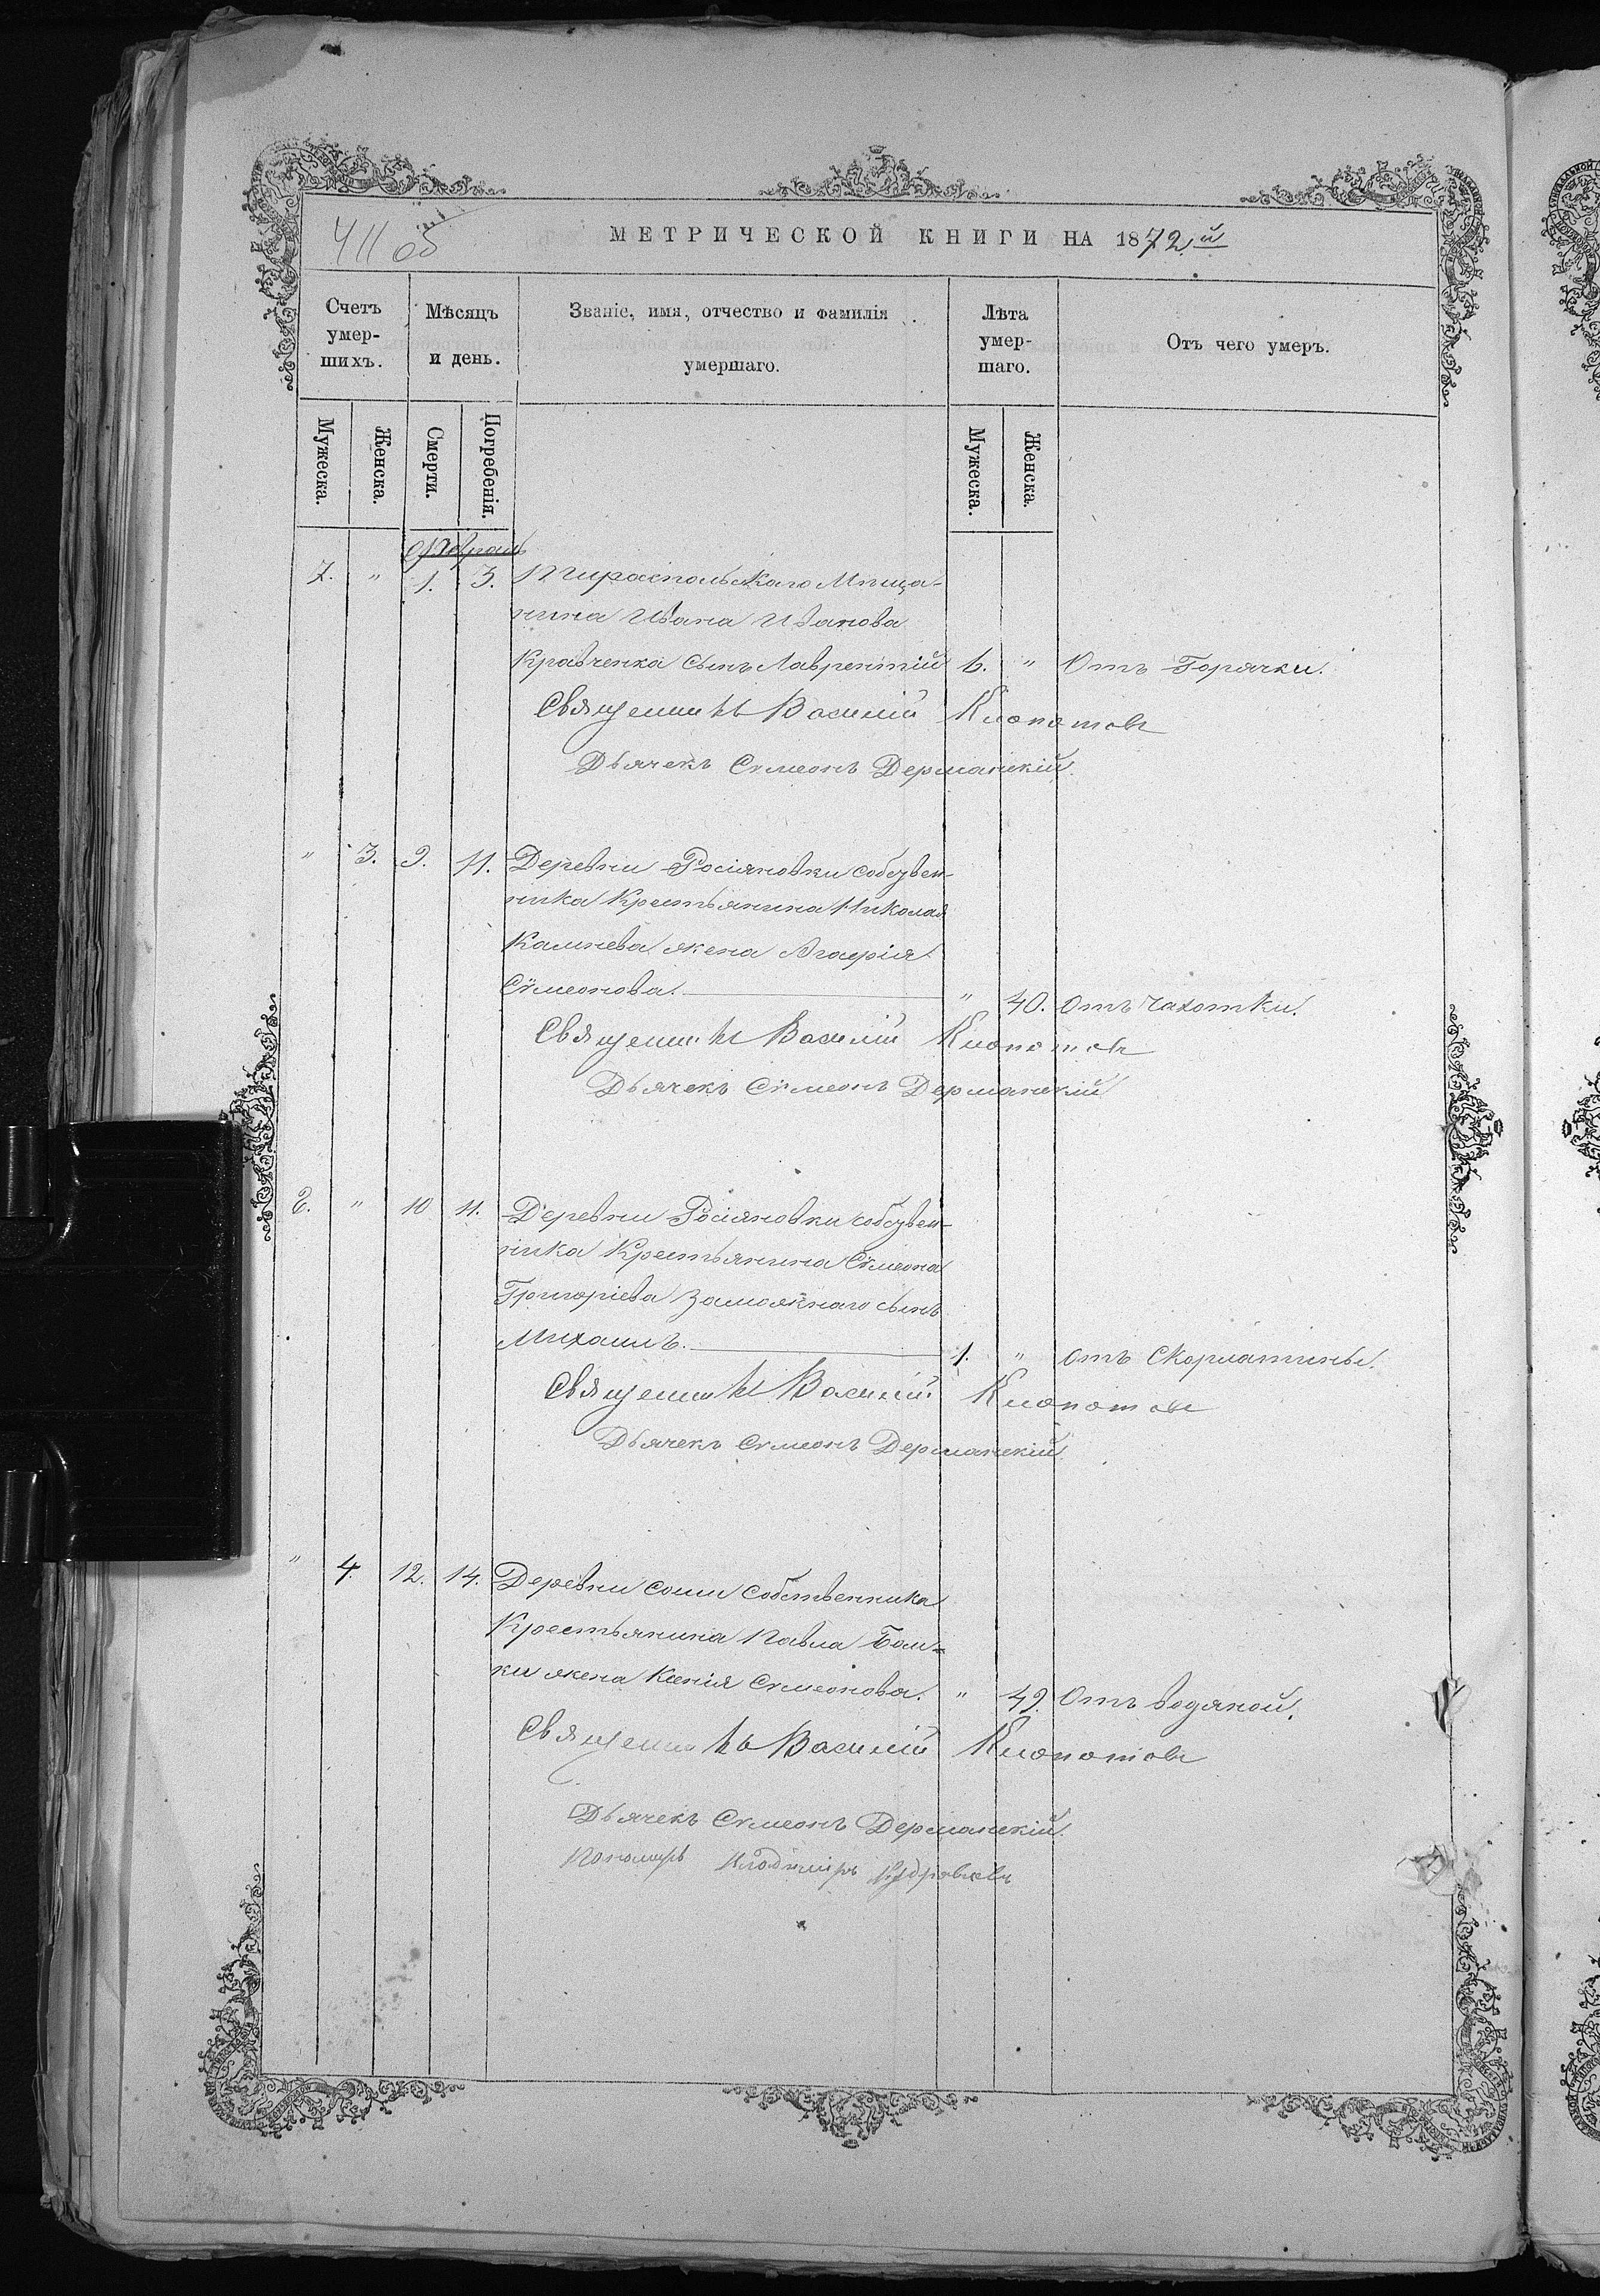 411 об
МЕТРИЧЕСКОЙ КНИГИ НА 1872й
Счетъ умер-шихъ.
Мѣсяцъ и день.
Званіе, имя, отчество и фамилія умершаго.
Лѣта умер-шаго.
Отъ чего умеръ.
Мужеска.
Женска.
Смерти.
Погребенія.
Мужеска.
Женска.
Февраль
7. " 1. 3. Тираспольскаго Мѣща-
нина Ивана Иванова
Кравченка сынъ Лаврентій 6. " Отъ Горячки.
Священникъ Василій Клопотовъ
Дьячекъ Сѵмеонъ Дерманскій.
" 3. 9. 11. Деревни Росіяновки собствен-
ника Крестьянина Николая
Камнева жена Агафія
Сѵмеонова. " 40. отъ чахотки.
Священникъ Василій Клопотовъ
Дьячекъ Сѵмеонъ Дерманскій
8. " 10 11. Деревни Росіяновки собствен-
ника Крестьянина Сѵмеона
Григоріева Заможнаго сынъ
Михаилъ. 1. " отъ Скорлатины.
Священникъ Василій Клопотовъ
Дьячекъ Сѵмеонъ Дерманскій
" 4. 12. 14. Деревни собственника
Крестьянина Павла
жена Ксенія Сѵмеонова. " 49. Отъ водяной.
Священникъ Василій Клопотовъ
Дьячекъ Сѵмеонъ Дерманскій.
Пономарь Владиміръ